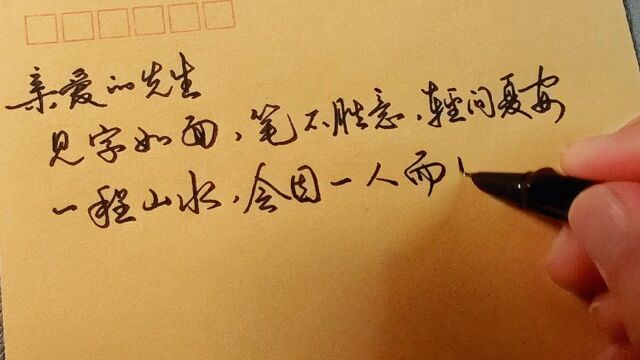 亲爱的先生
见字如面，笔不胜意，輕问夏安
一程山水，会因一人而